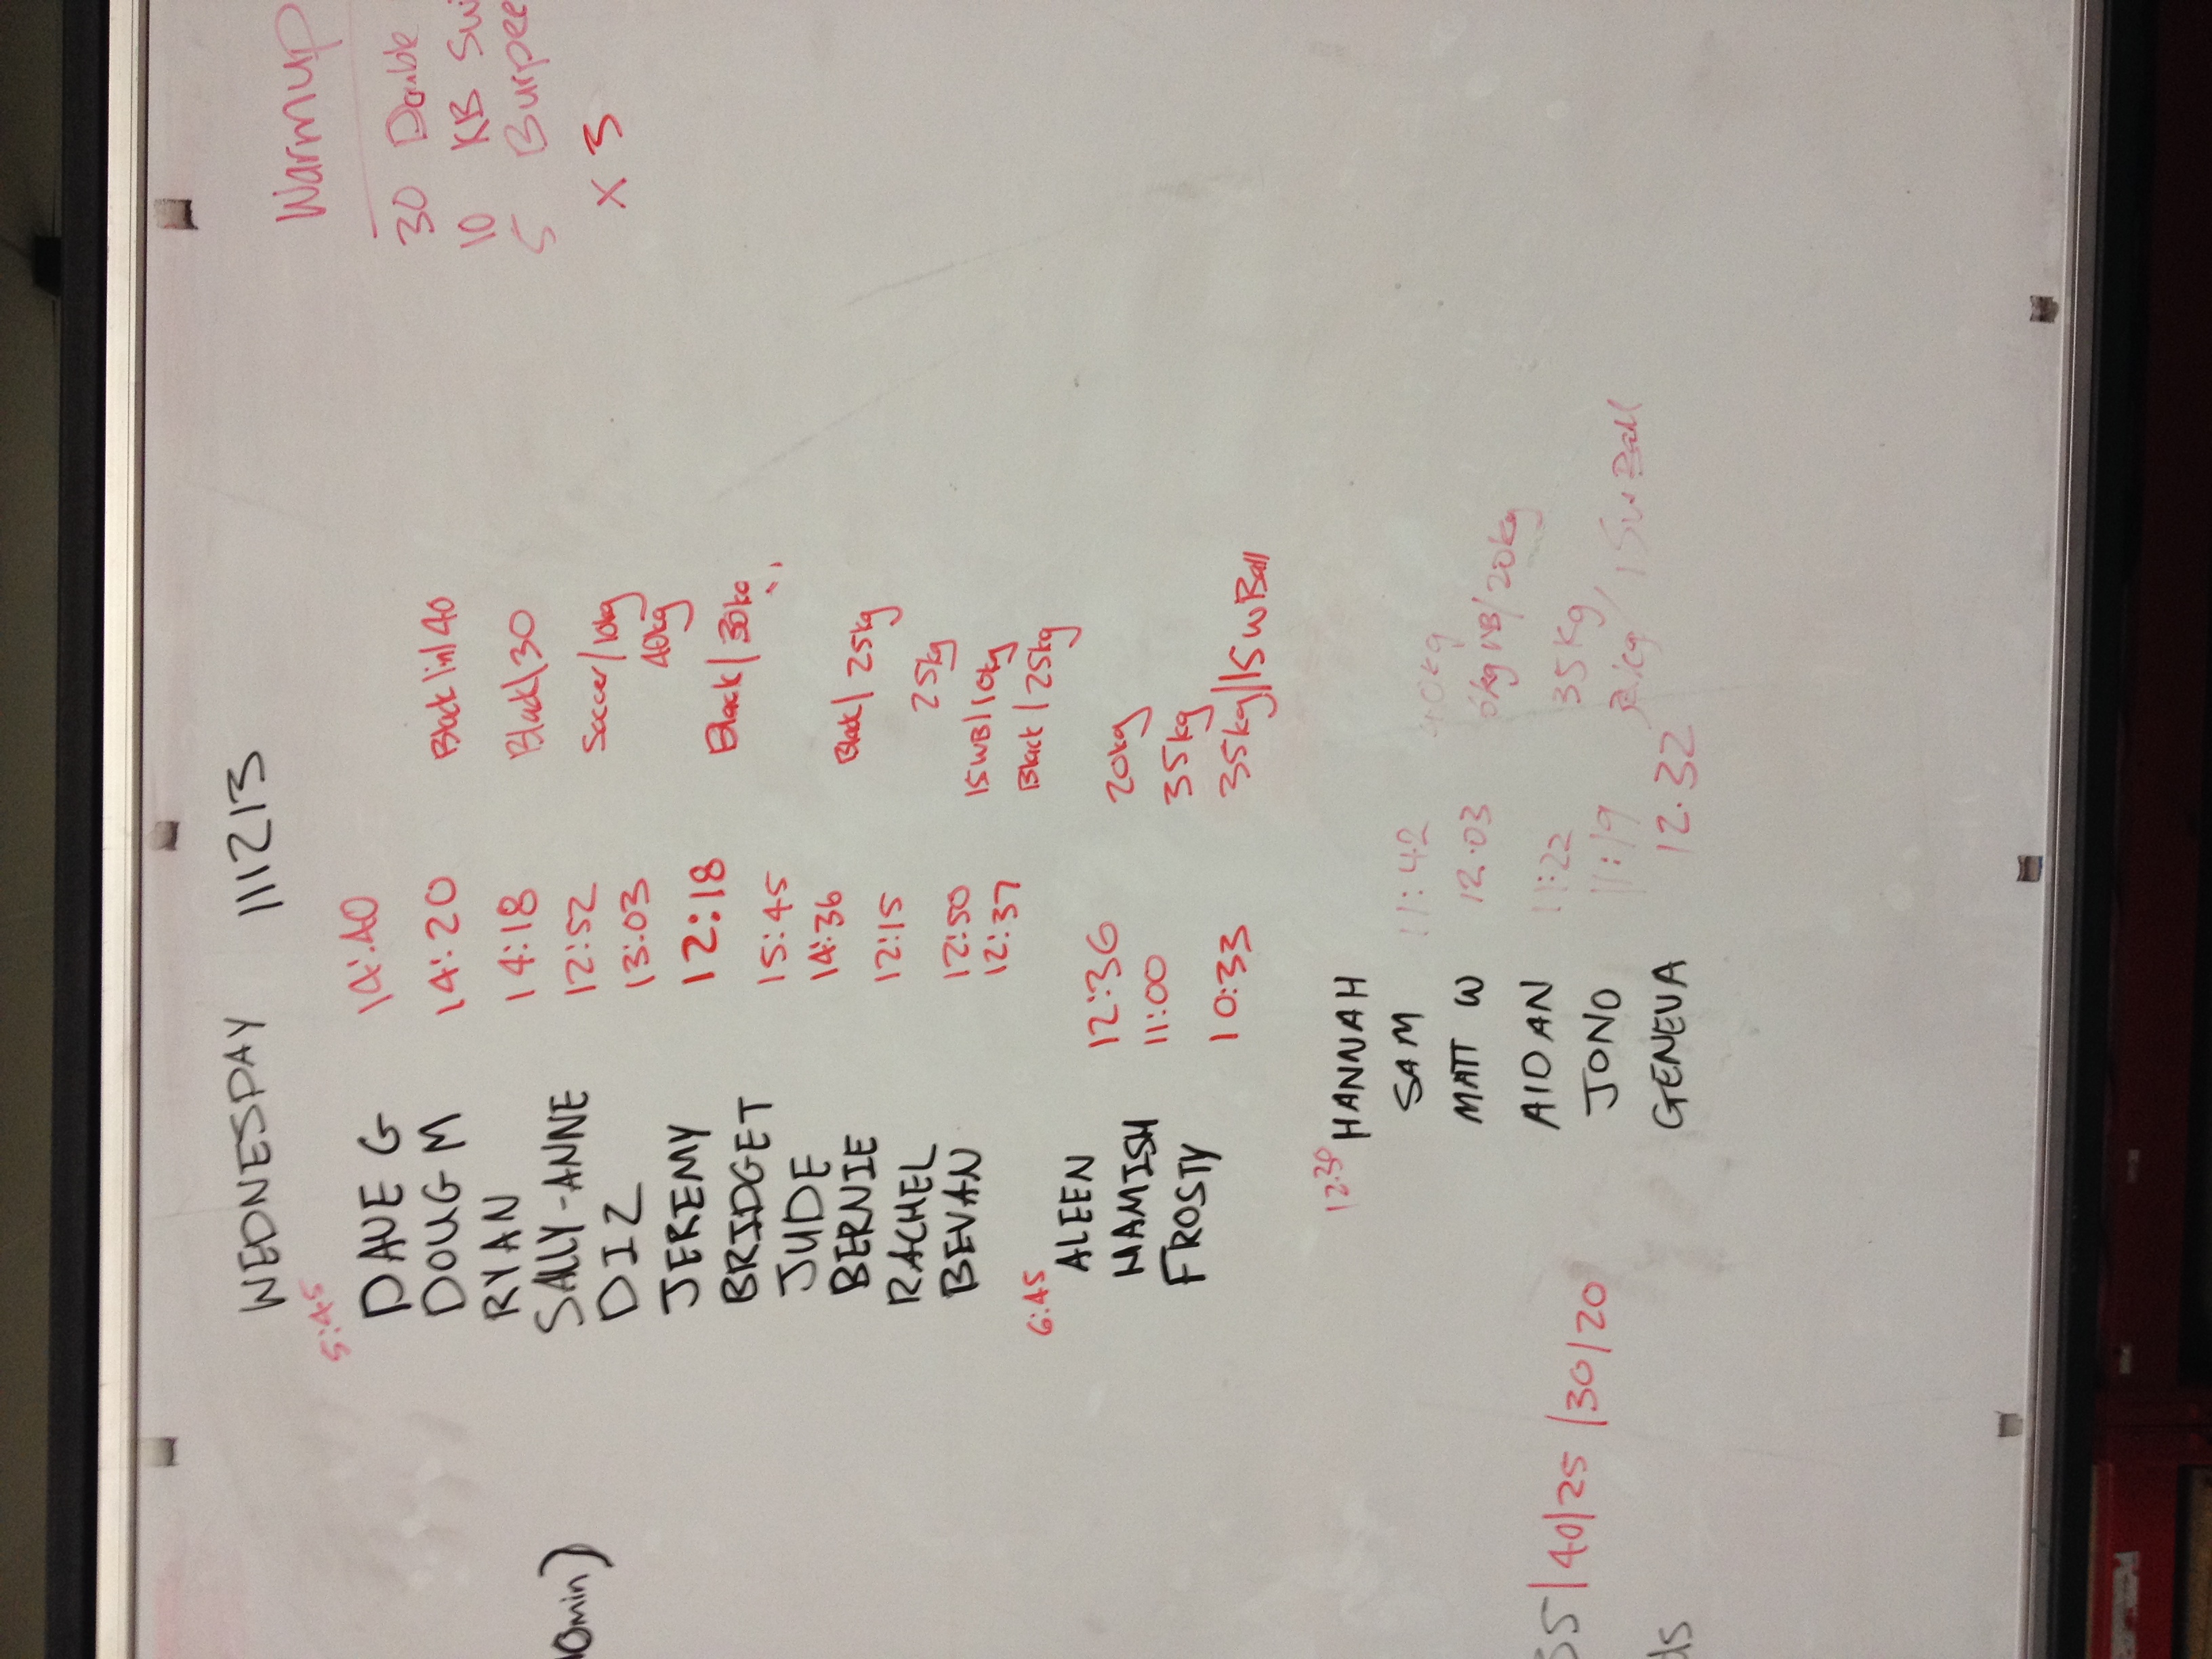 WEDNESDAY 111213
5:45
DAVE G 14:40
DOUG M 14:20 Black in/40
RYAN 14:18 Black/30
SALLY-ANNE 12:52 Soccer/10kg
DIZ 13:03 40kg
JEREMY 12:18 Black/30kg
BRIDGET 15:45
JUDE 14:36 Black/25kg
BERNIE 12:15 25kg
RACHEL 12:50 15WB/10kg
BEVAN 12:37 Black/25kg
6:45
ALEEN 12:36 20kg
HAMISH 11:00 35kg
FROSTY 10:33 35kg/15wBall
12:30
HANNAH
SAM 11:42 40kg
MATT W 12.03 6kg WB/20kg
AIDAN 11:22 35Kg
JONO 11:19 15w Ball
GENEVA 12.32
Warmup
30 Double
10 KB Swi
5 Burpee
x 3
0min)
35/40/25/30/20
ds